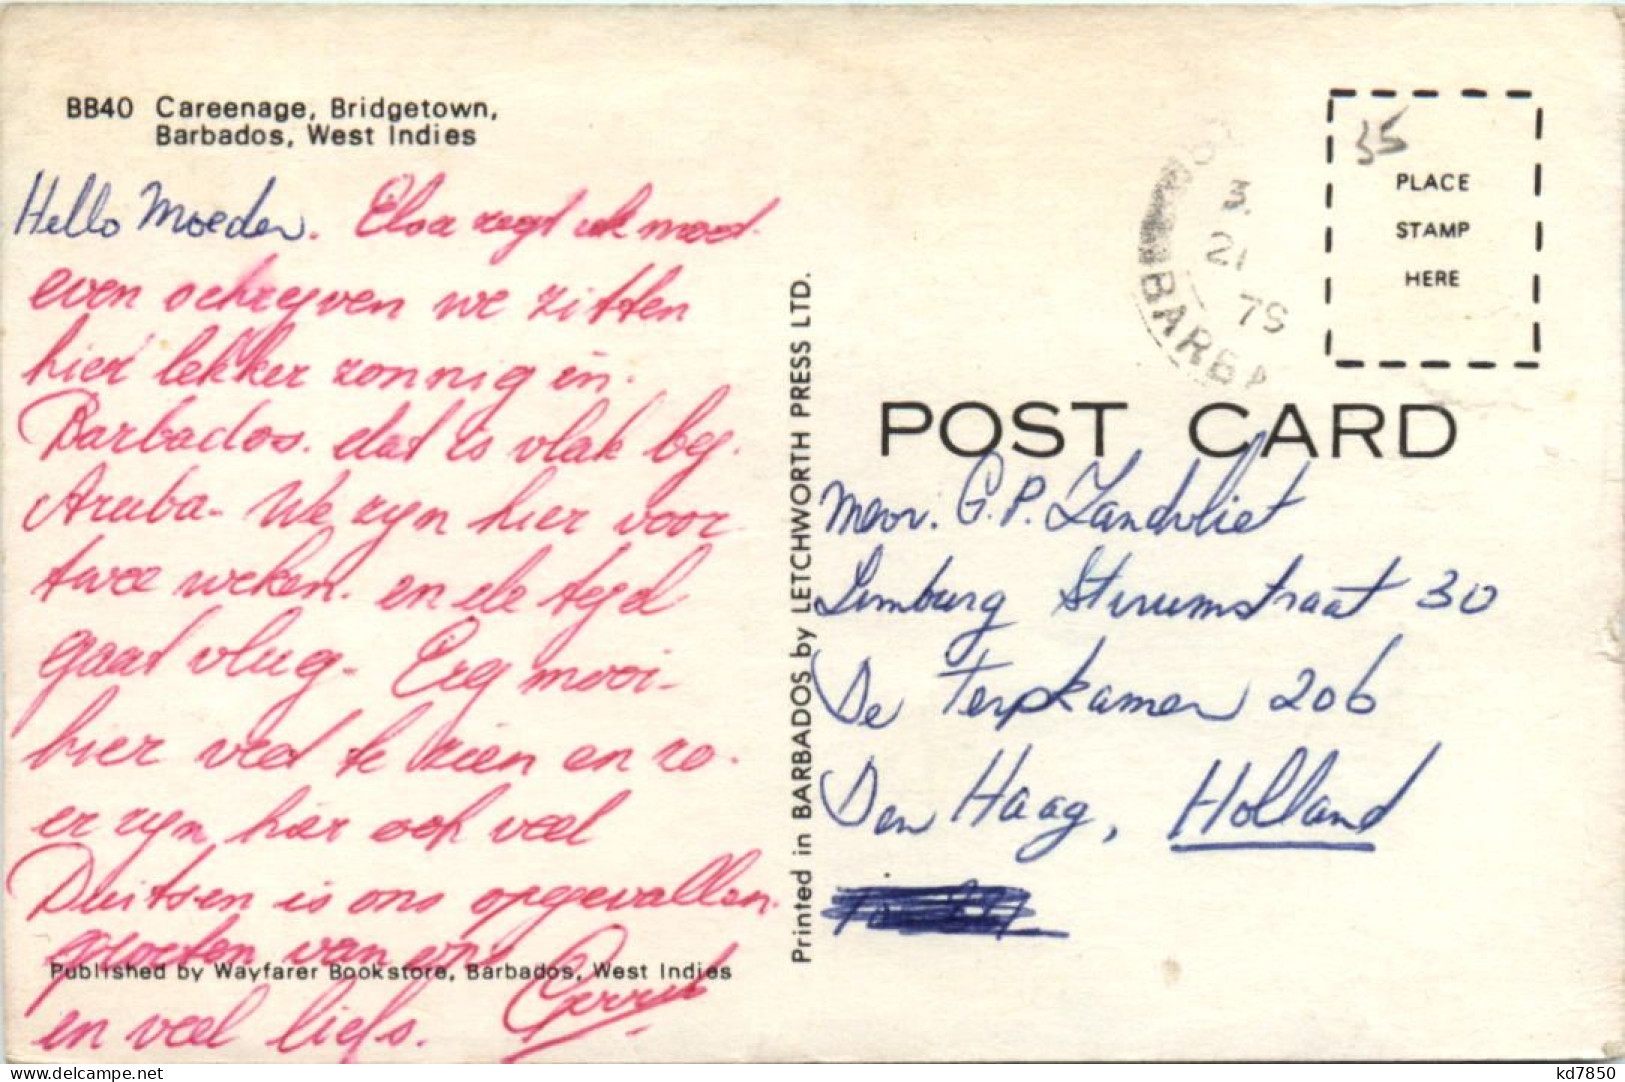 BB40 Careenage, Bridgetown,
Barbados, West Indies
Hello Moeder. Elsa zegt ik moet
even schryven we zitten
hier lekker zonnig in
Barbados. dat is vlak by
Aruba - We zyn hier voor
twee weken. en de tyd
gaat vlug - Erg mooi -
hier veel te zien en zo.
er zyn hier ook veel
Duitsen is ons opgevallen.
groeten van ons
Published by Wayfarer Bookstore, Barbados, West Indies
en veel liefs. Gerrit
Printed in BARBADOS by LETCHWORTH PRESS LTD.
3
21
79
BARBA
35
PLACE
STAMP
HERE
POST CARD
Mevr. G.P. Zandvliet
Limburg Stirumstraat 30
De Terpkamer 206
Den Haag, Holland
kd7850